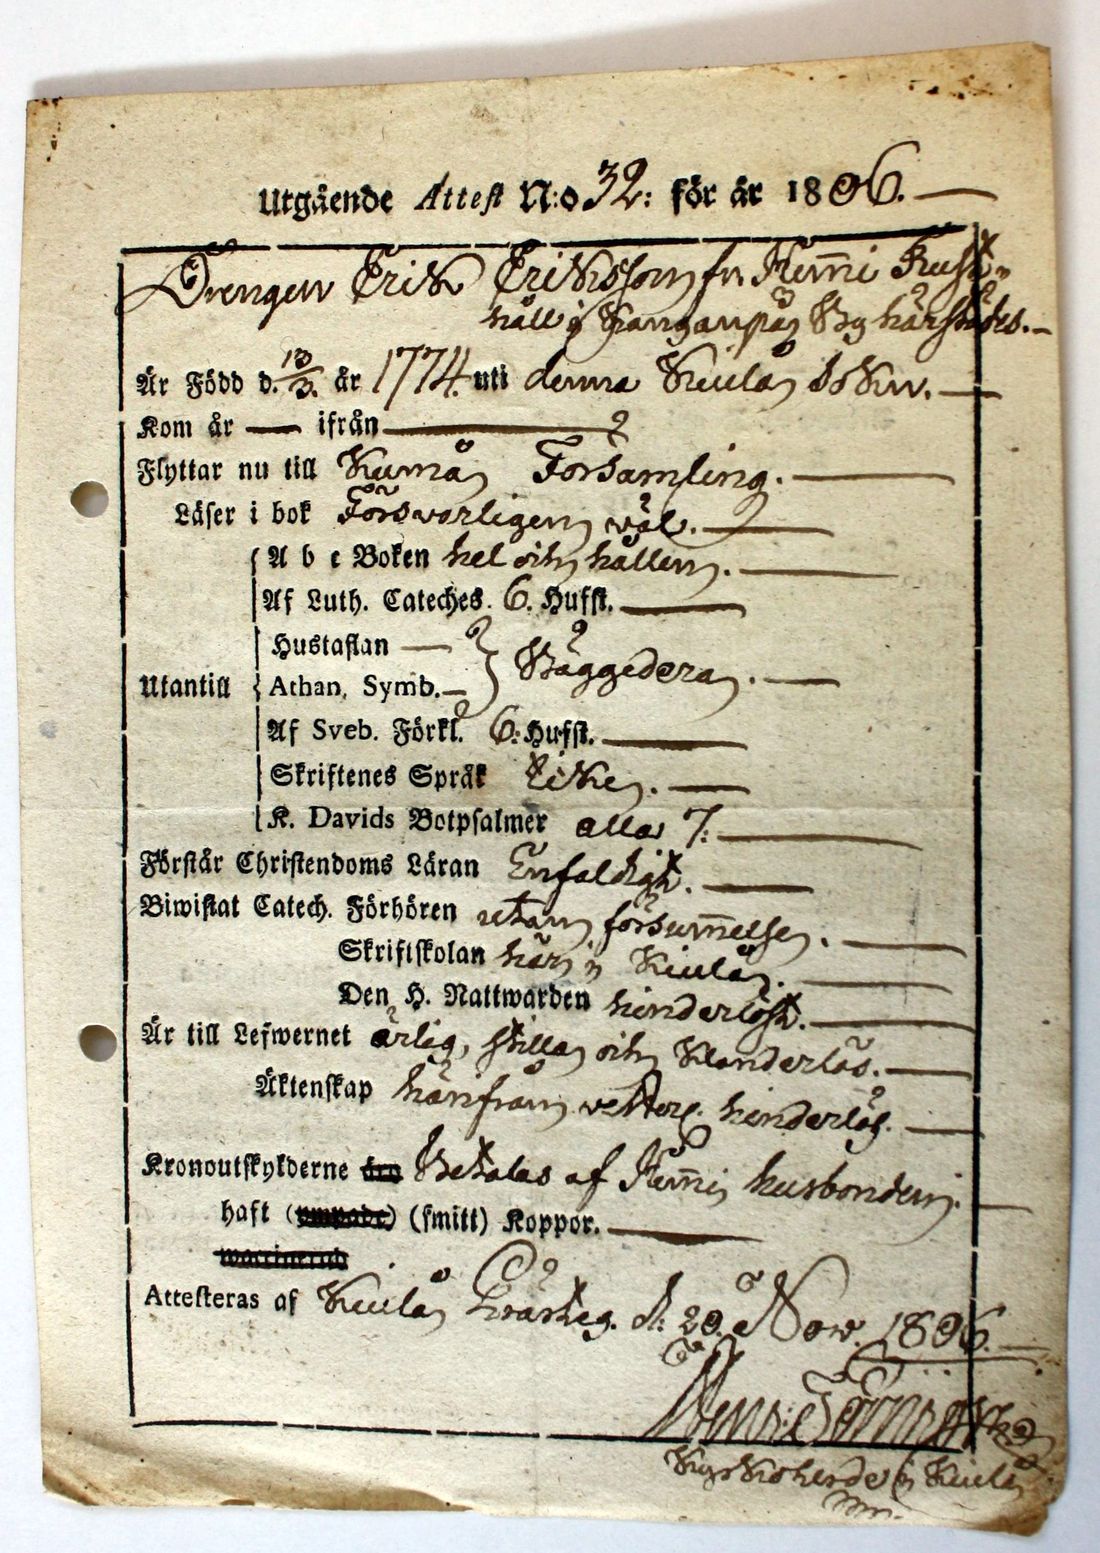 Utgående Attest N:o 32: för år 1806.
Drengen Erik Eriksson fr. Hem̄i Rust-
håll i Kanganpää By härstädes.
Är Född d. 13/3. år 1774. uti denna Kiulo Sokn.
Kom år — ifrån —
Flyttar nu till Kumo Församling.
Läser i bok Försvarligen wäl.
A b c Boken hel och hållen.
Af Luth. Cateches. 6. Hufst.
Hustaflan —
Utantill Athan. Symb. — Bäggedera.
Af Sveb. Förkl. 6: Hufst.
Skriftenes Språk Icke.
K. Davids Botpsalmer alla 7:
Förstår Christendoms Läran Enfaldigt.
Biwistat Catech. Förhören utan försum̄else.
Skriftskolan här i Kiulo.
Den H. Nattwarden hinderlöst.
Är till Lefwernet ärlig, stilla och Klanderlös.
Äktenskap härifrån hinderlös.
Kronoutskylderne äro Betalas af Hem̄i husbonden.
haft (ympade) (smitt) Koppor.
waccinerad
Attesteras af Kiulo Prästeg. d: 20. Nov. 1806.
Kyrkoherde i Kiulo